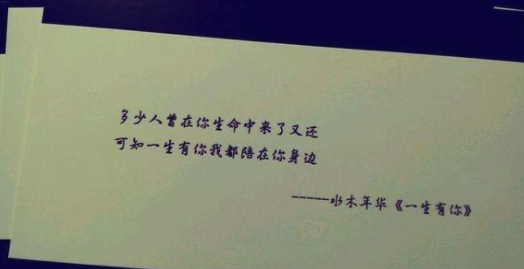 多少人曾在你生命中来了又还
可知一生有你我都陪在你身边
——水木年华《一生有你》